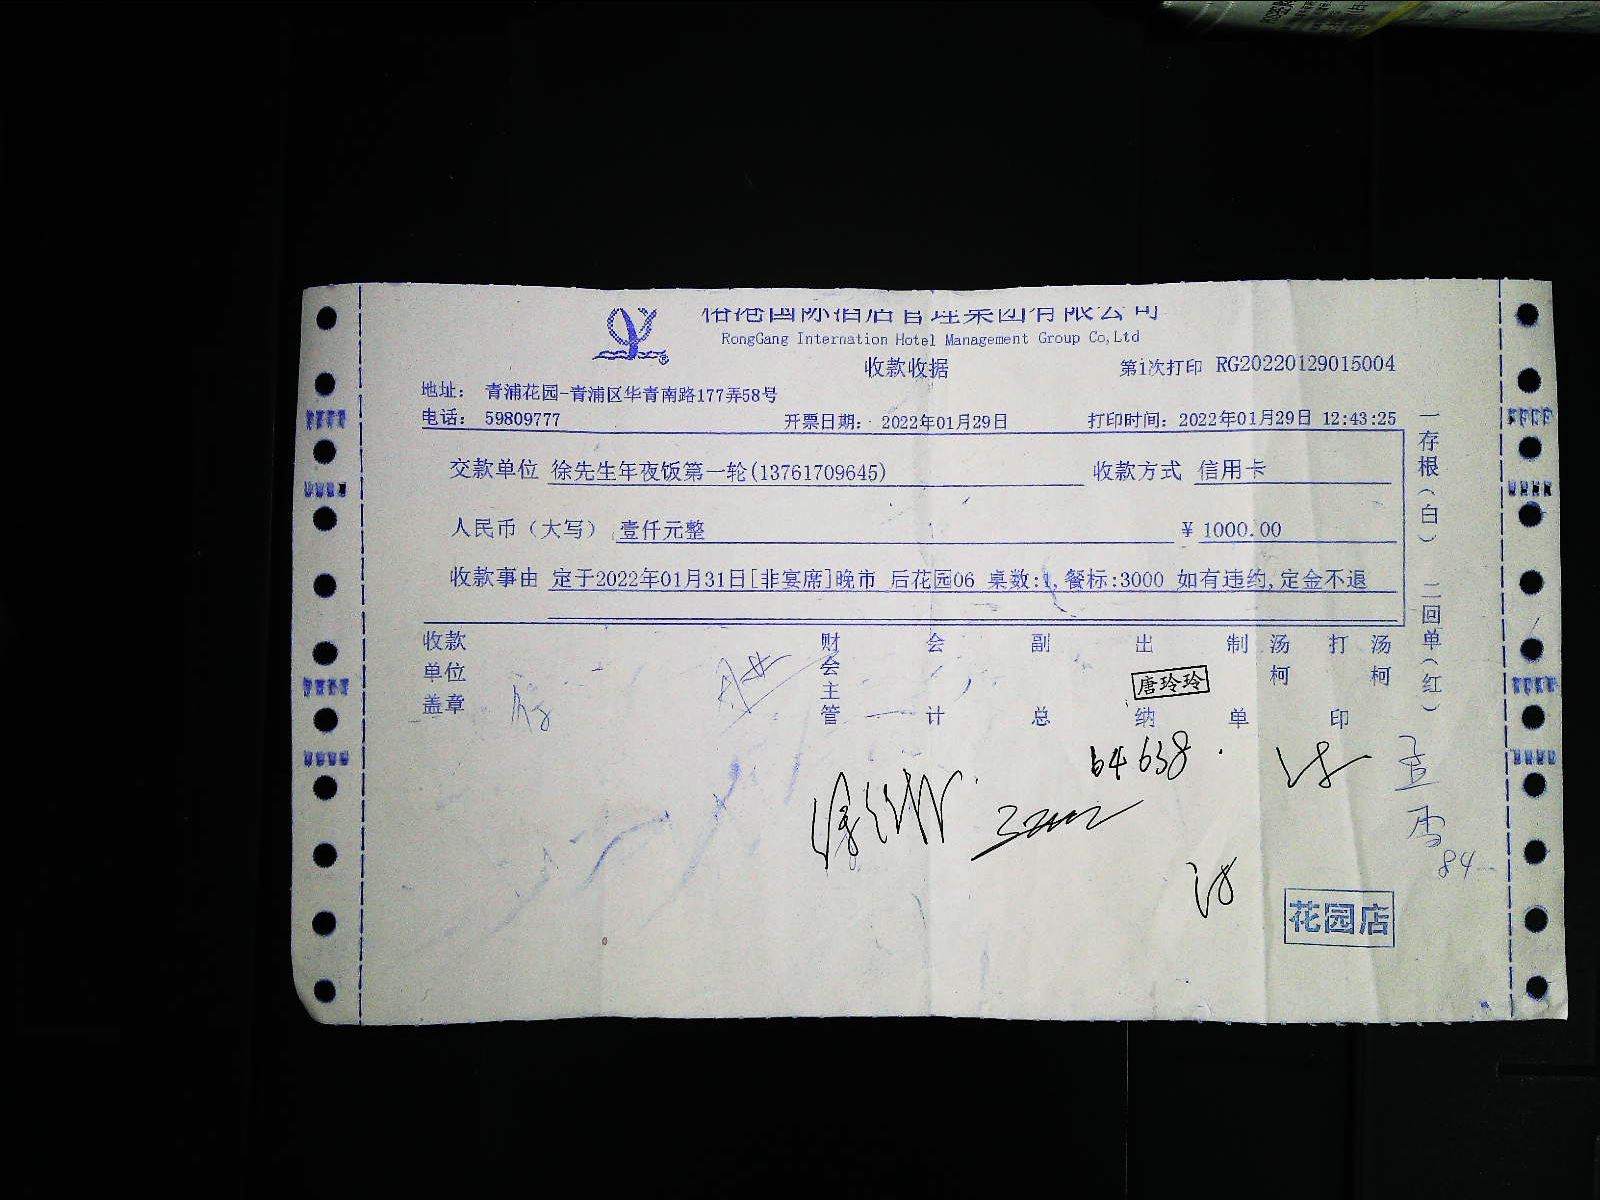 裕港国际酒店管理集团有限公司
RongGang Internation Hotel Management Group Co,Ltd
收款收据
第1次打印 RG20220129015004
地址: 青浦花园-青浦区华青南路177弄58号
电话: 59809777 开票日期: 2022年01月29日 打印时间: 2022年01月29日 12:43:25
交款单位 徐先生年夜饭第一轮(13761709645) 收款方式 信用卡
人民币（大写） 壹仟元整 ¥ 1000.00
收款事由 定于2022年01月31日[非宴席]晚市 后花园06 桌数:1,餐标:3000 如有违约,定金不退
收款单位盖章 财会主管 会计 副总 出纳 唐玲玲 制单 汤柯 打印 汤柯
一存根（白） 二回单（红）
64638
84
花园店